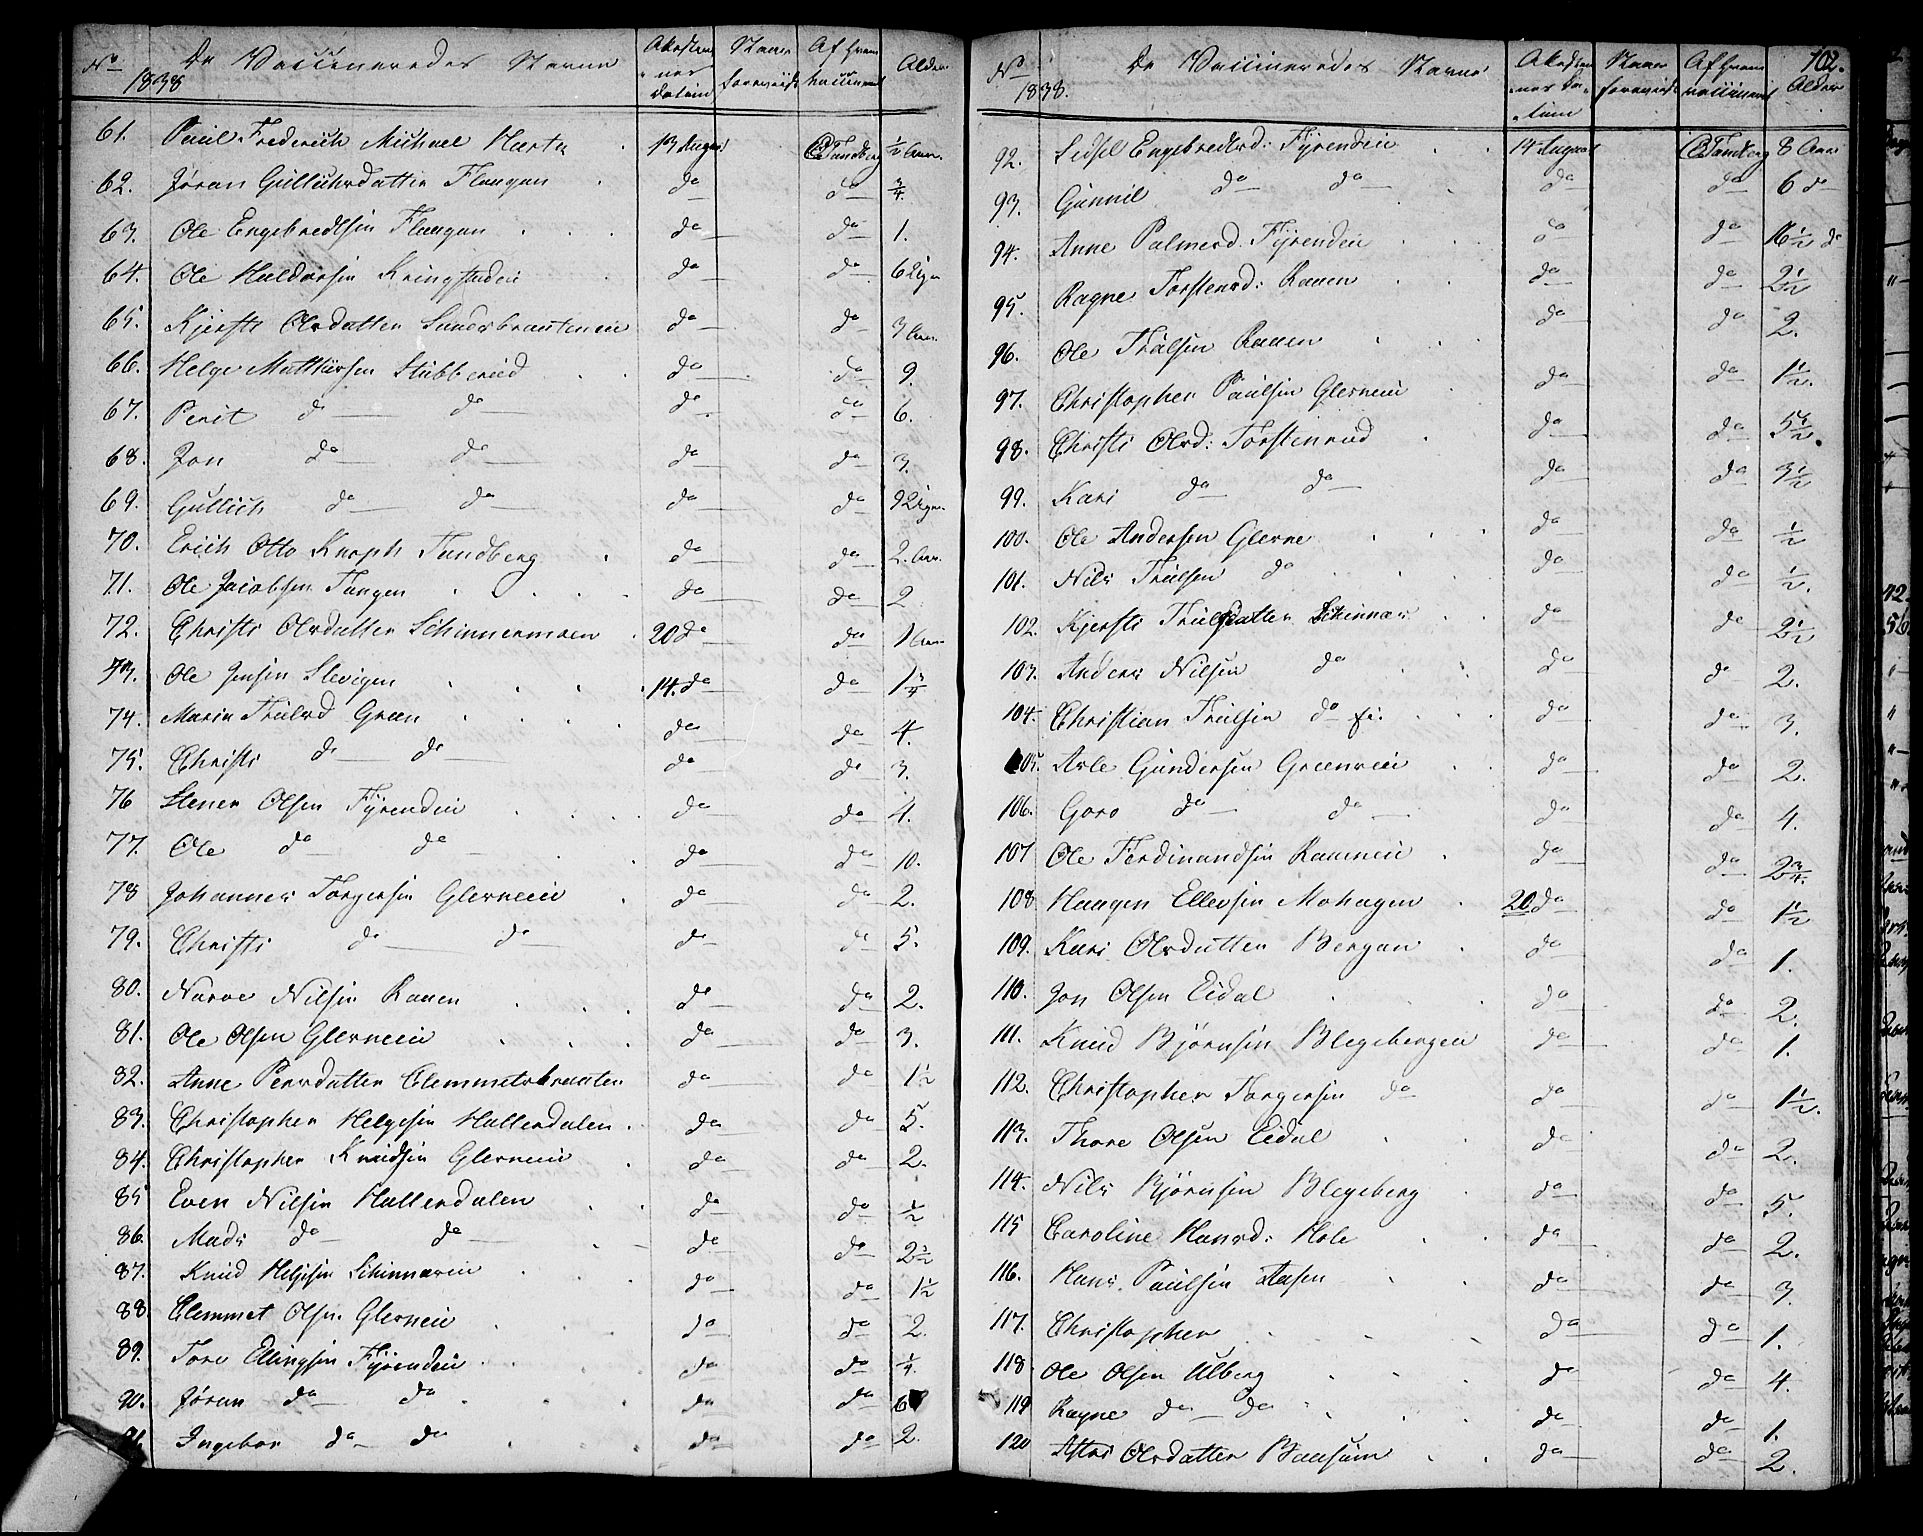 No De Vaccineredes Navne Attestenes Datum Naar foreviist Af hvem vaccineret Alder
1838
61. Paul Frederich Michael Hartz 13 August C Tandberg ½ Aar.
62. Jøran Gulliksdatter Flaagan do do ¾
63. Ole Engebredtsen Flaagan do do 1.
64. Ole Haldorsen Kringstadeie do do 6 Uger
65. Kjersti Olsdatter Sandsbraateneie do do 3 Aar.
66. Helge Mathisen Stubberud do do 9.
67. Perit do do do do 6.
68. Jon do do do do 3.
69. Gullich do do do do 9 Uger.
70. Erich Otto Knoph Tandberg do do 2. Aar.
71. Ole Jacobsen Tangen do do 2
72. Christi Olsdatter Schinnesmoen 20 do do 1 Aar
73. Ole Jensen Slevigen 14. do do 1¾
74. Marie Trulsd Green do do 4.
75. Christi do do do do 3.
76 Stener Olsen Fyrendeie do do 4.
77. Ole do do do do 10.
78 Johannes Torgersen Glesneeie do do 2.
79. Christi do do do do 5.
80. Narve Nilsen Raaen do do 2.
81. Ole Olsen Glesneeie do do 3.
82. Anne Persdatter Clemmetsbraaten do do 1½
83. Christopher Helgesen Hallerdalen do do 5.
84. Christopher Knudsen Glesneeie do do 2.
85 Even Nilsen Hallerdalen do do ½
86. Mads do do do do 2½
87. Knud Helgesen Schinneseie do do 1½
88. Clemmet Olsen Glesneeie do do 2.
89. Tore Ellingsen Fyrendeie do do ¼.
90. Jøran do do do do 6
91. Ingebor do do do do 2.
102.
No De Vaccineredes Navne Attestenes Datum Naar foreviist Af hvem vaccineret Alder
1838.
92. Sidsel Engebredtsd: Fyrendeie 14 August C Tandberg 8 Aar
93. Gunnil do do do do 6 do
94. Anne Palmesd. Fyrendeie do do 16½ do
95. Ragne Torstensd: Raaen do do 2½
96. Ole Trulsen Raaen do do 2.
97. Christopher Paulsen Glesneeie do do 1½.
98. Christi Olsd: Torstenrud do do 5½.
99. Kari do do do do 3½
100. Ole Andersen Glesne do do ½
101. Nils Trulsen do do do ½.
102. Kjersti Trulsdatter Schinnes do do 2½
103. Anders Nilsen do do do 2.
104. Christian Trulsen do ei. do do 3.
105. Asle Gundersen Greeneeie do do 2.
106. Goro do do do do 4.
107 Ole Ferdinandsen Raaeneie do do 2¾.
108 Haagen Ellevsen Mohagen 20 do do 1½
109. Kari Olsdatter Bergan do do 1.
110. Jon Olsen Eidal do do 2.
111. Knud Bjørnsen Blegebergeie do do 1.
112. Christopher Torgersen do do do 1½.
113. Thore Olsen Eidal do do 2.
114. Nils Bjørnsen Blegeberg do do 5.
115 Caroline Hansd: Hole do do 2.
116. Hans Paulsen Aasen do do 3.
117. Christopher do do 1.
118 Ole Olsen Ulberg do do 4.
119 Ragne do do do do 1.
120 Astri Olsdatter Baasum do do 2.